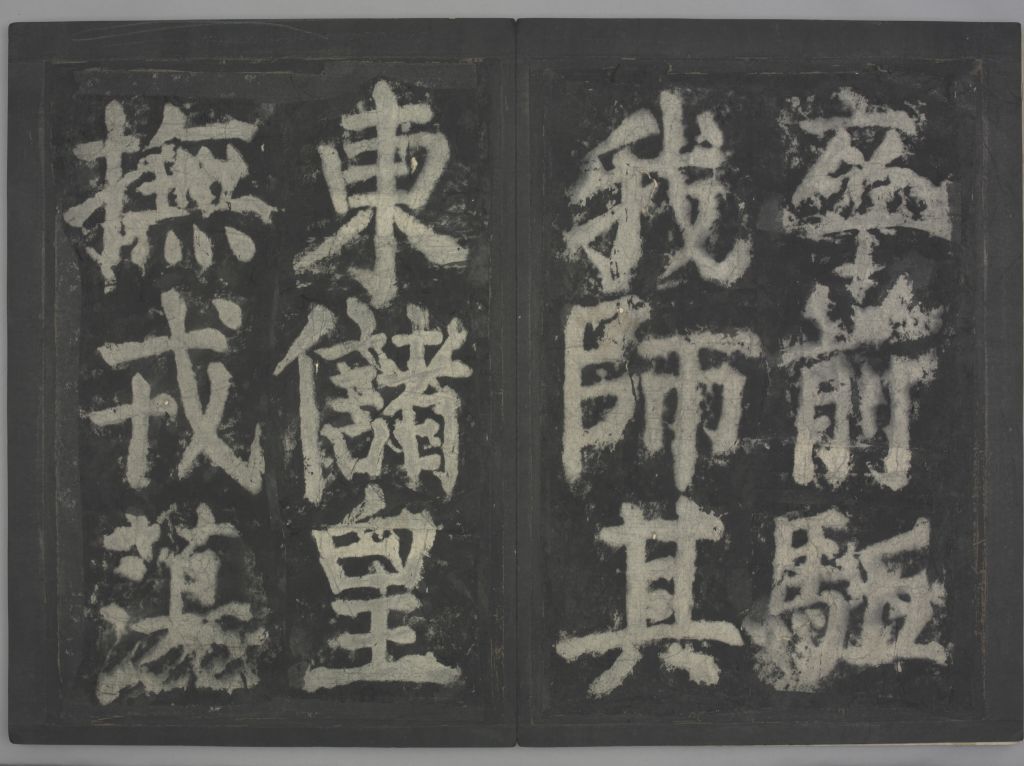 卒前駈
我師其
東儲皇
撫戎蕩